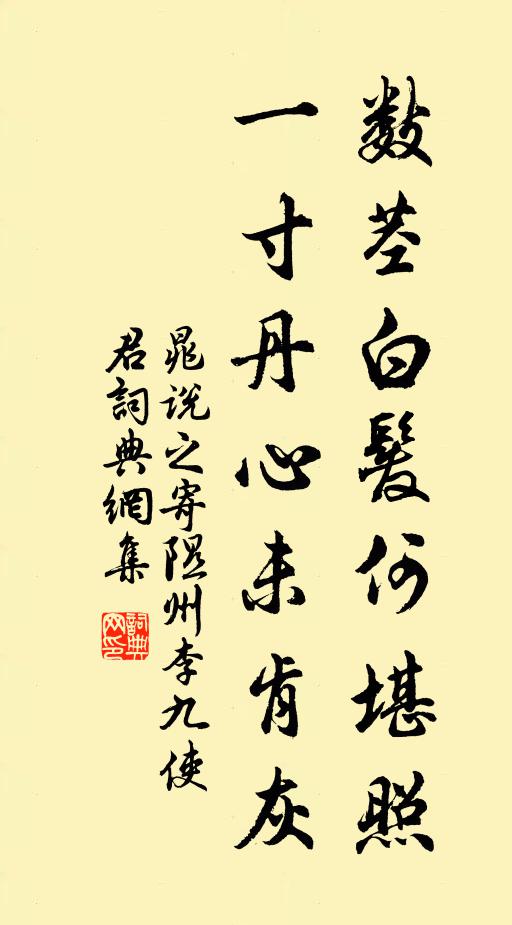 数茎白髮何堪照
一寸丹心未肯灰
晁说之寄隰州李九使
君詞典網集
詞典网印